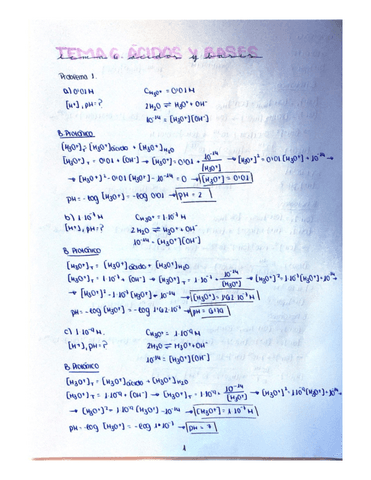 TEMA 6. ÁCIDOS Y BASES
tema 6 ácidos y bases
Problema 1.
a) 0'01 M C_H3O+ = 0'01 M
[H+], pH = ? 2H2O ⇌ H3O+ + OH-
10^-14 = [H3O+][OH-]
B. PROTÓNICO
[H3O+]T = [H3O+]ácido + [H3O+]H2O
[H3O+]T = 0'01 + [OH-] → [H3O+] = 0'01 + 10^-14/[H3O+] → [H3O+]^2 = 0'01 [H3O+] + 10^-14 →
→ [H3O+]^2 - 0'01 [H3O+] - 10^-14 = 0 → [H3O+] = 0'01
pH = -log [H3O+] = -log 0'01 → pH = 2
b) 1·10^-7 M C_H3O+ = 1·10^-7 M
[H+], pH = ? 2H2O ⇌ H3O+ + OH-
10^-14 = [H3O+][OH-]
B. PROTÓNICO
[H3O+]T = [H3O+]ácido + [H3O+]H2O
[H3O+]T = 1·10^-7 + [OH-] → [H3O+]T = 1·10^-7 + 10^-14/[H3O+] → [H3O+]^2 = 1·10^-7 [H3O+] + 10^-14 →
→ [H3O+]^2 - 1·10^-7 [H3O+] - 10^-14 → [H3O+] = 1'62·10^-7 M
pH = -log [H3O+] = -log 1'62·10^-7 →
c) 1·10^-9 M C_H3O+ = 1·10^-9 M
[H+], pH = ? 2H2O ⇌ H3O+ + OH-
10^-14 = [H3O+][OH-]
B. PROTÓNICO
[H3O+]T = [H3O+]ácido + [H3O+]H2O
[H3O+]T = 1·10^-9 + [OH-] → [H3O+]T = 1·10^-9 + 10^-14/[H3O+] → [H3O+]^2 = 1·10^-9 [H3O+] + 10^-14 →
→ [H3O+]^2 - 1·10^-9 [H3O+] - 10^-14 → [H3O+] = 1·10^-7 M
pH = -log [H3O+] = -log 1·10^-7 → pH = 7
1